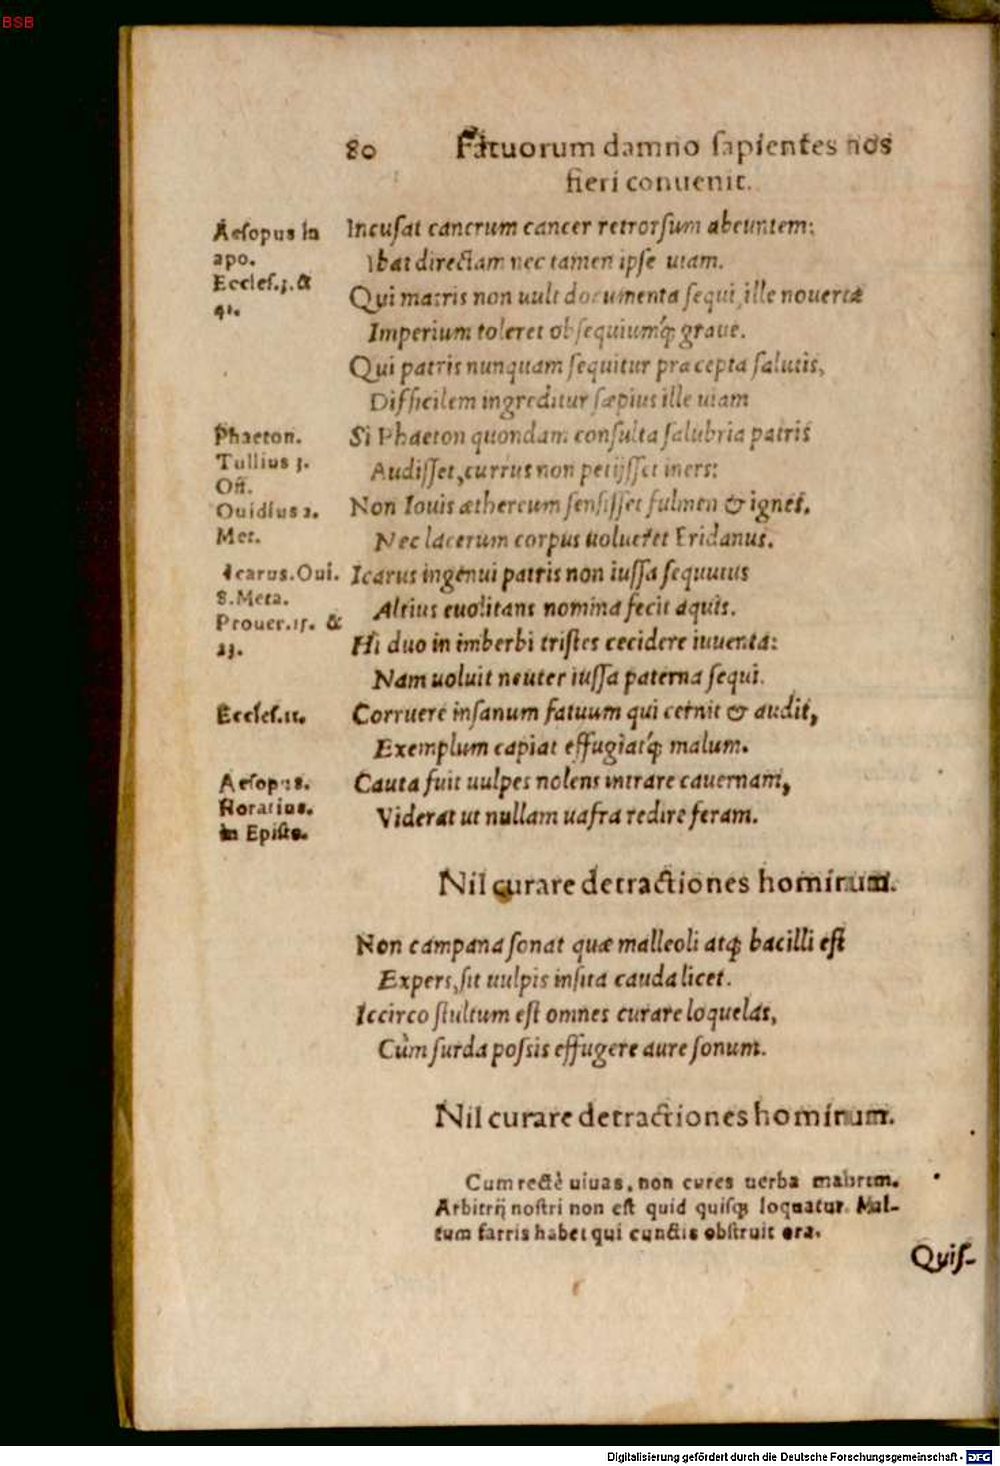 BSB
80 Fatuorum damno sapientes nos
fieri conuenit.
Aesopus in
apo.
Eccles.3.&
41.
Incusat cancrum cancer retrorsum abeuntem:
Ibat directam nec tamen ipse uiam.
Qui matris non uult documenta sequi, ille nouercæ
Imperium toleret obsequiumq́; graue.
Qui patris nunquam sequitur præcepta salutis,
Difficilem ingreditur sæpius ille uiam
Phaeton.
Tullius 3.
Off.
Ouidius 2.
Met.
Si Phaeton quondam consulta salubria patris
Audisset, currus non petijsset iners:
Non Iouis æthereum sensisset fulmen & ignes.
Nec lacerum corpus uolueret Eridanus.
Icarus.Oui.
8.Meta.
Prouer.15. &
23.
Icarus ingenui patris non iussa sequutus
Altius euolitans nomina fecit aquis.
Hi duo in imberbi tristes cecidere iuuenta:
Nam uoluit neuter iussa paterna sequi.
Eccles.11.
Corruere insanum fatuum qui cernit & audit,
Exemplum capiat effugiatq́; malum.
Aesopus.
Horatius.
in Episto.
Cauta fuit uulpes nolens intrare cauernam,
Viderat ut nullam uafra redire feram.
Nil curare detractiones hominum.
Non campana sonat quæ malleoli atq; bacilli est
Expers, sit uulpis insita cauda licet.
Iccirco stultum est omnes curare loquelas,
Cùm surda possis effugere aure sonum.
Nil curare detractiones hominum.
Cum rectè uiuas, non cures uerba malorum.
Arbitrij nostri non est quid quisq; loquatur. Mul-
tum farris habet qui cunctis obstruit ora.
Quis-
Digitalisierung gefördert durch die Deutsche Forschungsgemeinschaft - DFG